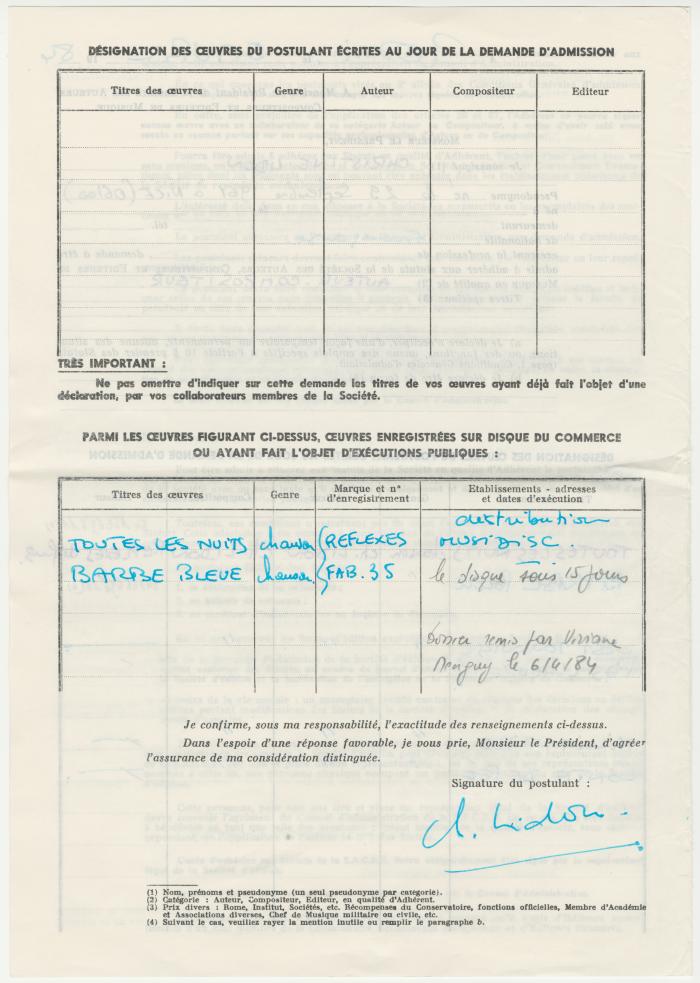 DÉSIGNATION DES ŒUVRES DU POSTULANT ÉCRITES AU JOUR DE LA DEMANDE D'ADMISSION
Titres des œuvres Genre Auteur Compositeur Editeur
TRÈS IMPORTANT :
Ne pas omettre d'indiquer sur cette demande les titres de vos œuvres ayant déjà fait l'objet d'une
déclaration, par vos collaborateurs membres de la Société.
PARMI LES ŒUVRES FIGURANT CI-DESSUS, ŒUVRES ENREGISTRÉES SUR DISQUE DU COMMERCE
OU AYANT FAIT L'OBJET D'EXÉCUTIONS PUBLIQUES :
Titres des œuvres Genre Marque et n° d'enregistrement Etablissements - adresses et dates d'exécution
distribution
TOUTES LES NUITS chanson REFLEXES MUSIDISC.
BARBE BLEUE chanson FAB. 35 le disque sous 15 jours
Dossier remis par Viviane
le 6/4/84
Je confirme, sous ma responsabilité, l'exactitude des renseignements ci-dessus.
Dans l'espoir d'une réponse favorable, je vous prie, Monsieur le Président, d'agréer
l'assurance de ma considération distinguée.
Signature du postulant :
C. Lidon
(1) Nom, prénoms et pseudonyme (un seul pseudonyme par catégorie).
(2) Catégorie : Auteur, Compositeur, Editeur, en qualité d'Adhérent.
(3) Prix divers : Rome, Institut, Sociétés, etc. Récompenses du Conservatoire, fonctions officielles, Membre d'Académie
et Associations diverses, Chef de Musique militaire ou civile, etc.
(4) Suivant le cas, veuillez rayer la mention inutile ou remplir le paragraphe b.